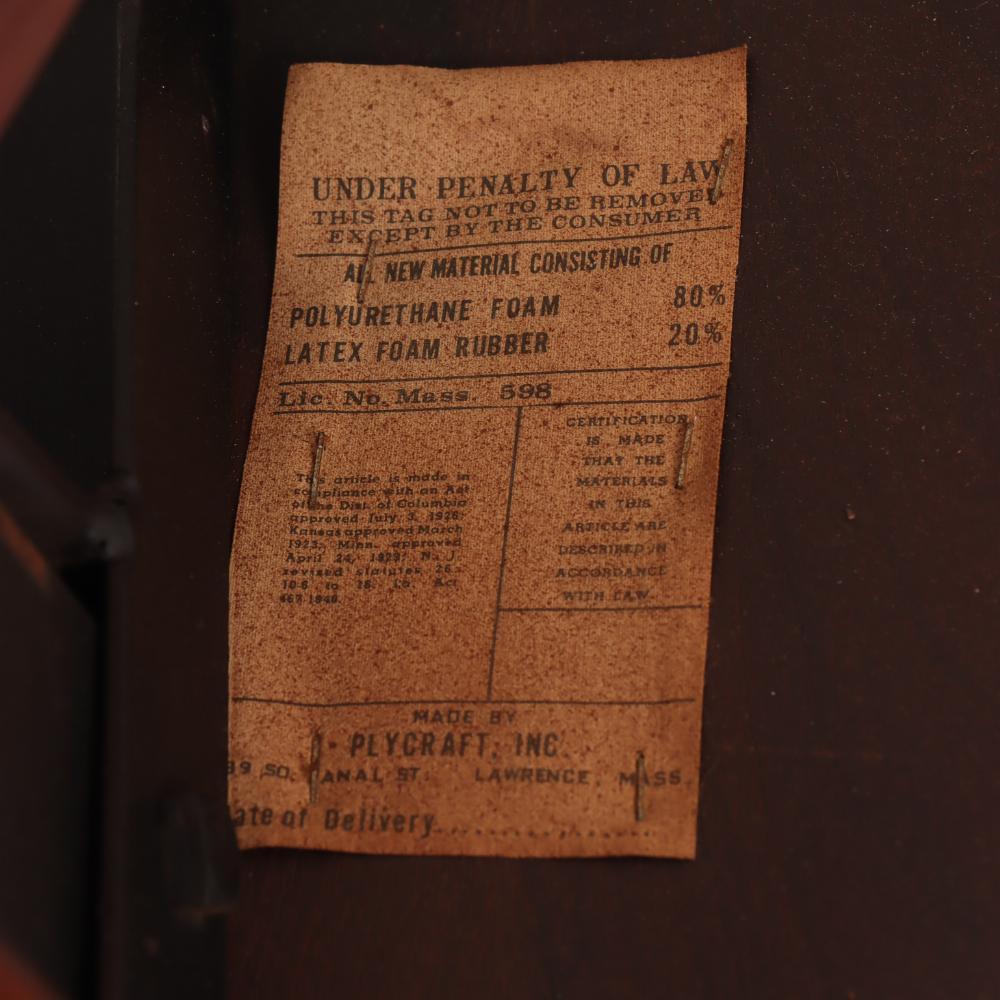 UNDER PENALTY OF LAW
THIS TAG NOT TO BE REMOVED
EXCEPT BY THE CONSUMER
ALL NEW MATERIAL CONSISTING OF
POLYURETHANE FOAM 80%
LATEX FOAM RUBBER 20%
Lic. No. Mass. 598
This article is made in
compliance with an Act
of the Dist. of Columbia
approved July 3, 1926;
Kansas approved March
1923; Minn. approved
April 24, 1929; N. J.
revised statutes 26:
10-6 to 18. La. Act
467 1948.
CERTIFICATION
IS MADE
THAT THE
MATERIALS
IN THIS
ARTICLE ARE
DESCRIBED IN
ACCORDANCE
WITH LAW
MADE BY
PLYCRAFT, INC.
39 SO. CANAL ST. LAWRENCE, MASS.
ate of Delivery